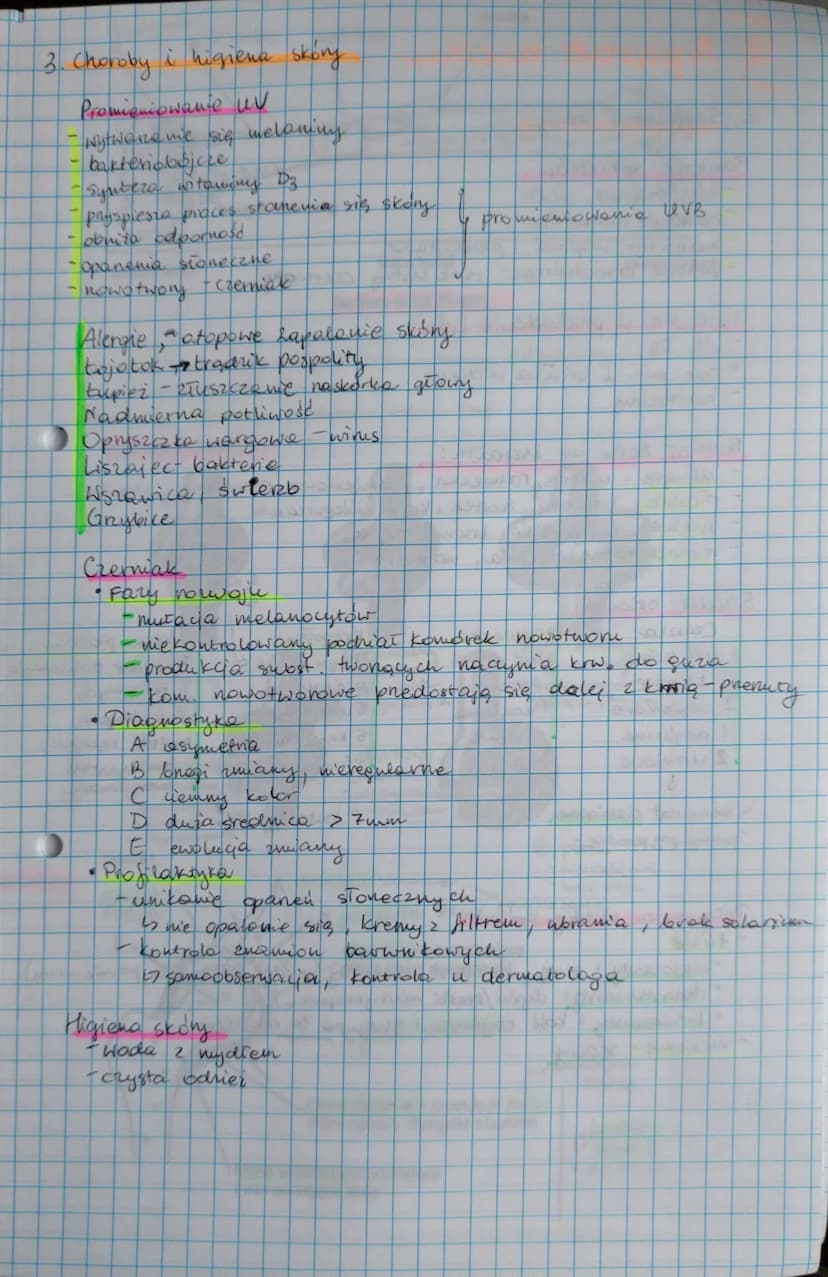 3. Choroby i higiena skóry
Promieniowanie UV
- wytwarzanie się melaniny
- bakteriobójcze
- synteza witaminy D3
- przyspiesza proces starzenia się skóry } promieniowanie UVB
- obniża odporność
- oparzenia słoneczne
- nowotwory - czerniak
Alergie, - atopowe zapalenie skóry
Łojotok → trądzik pospolity
Łupież - złuszczanie naskórka głowy
Nadmierna potliwość
Opryszczka wargowa - wirus
Liszajec - bakterie
Wszawica, świerzb
Grzybice
Czerniak
• Fazy rozwoju
- mutacja melanocytów
- niekontrolowany podział komórek nowotworu
- produkcja subst. tworzących naczynia krw. do guza
- kom. nowotworowe przedostają się dalej z krwią - przerzuty
• Diagnostyka
A asymetria
B brzegi zmiany, nieregularne
C ciemny kolor
D duża średnica > 7mm
E ewolucja zmiany
• Profilaktyka
- unikanie oparzeń słonecznych
↳ nie opalanie się, kremy z filtrem, ubrania, brak solarium
- kontrola znamion barwnikowych
↳ samoobserwacja, kontrola u dermatologa
Higiena skóry
- woda z mydłem
- czysta odzież